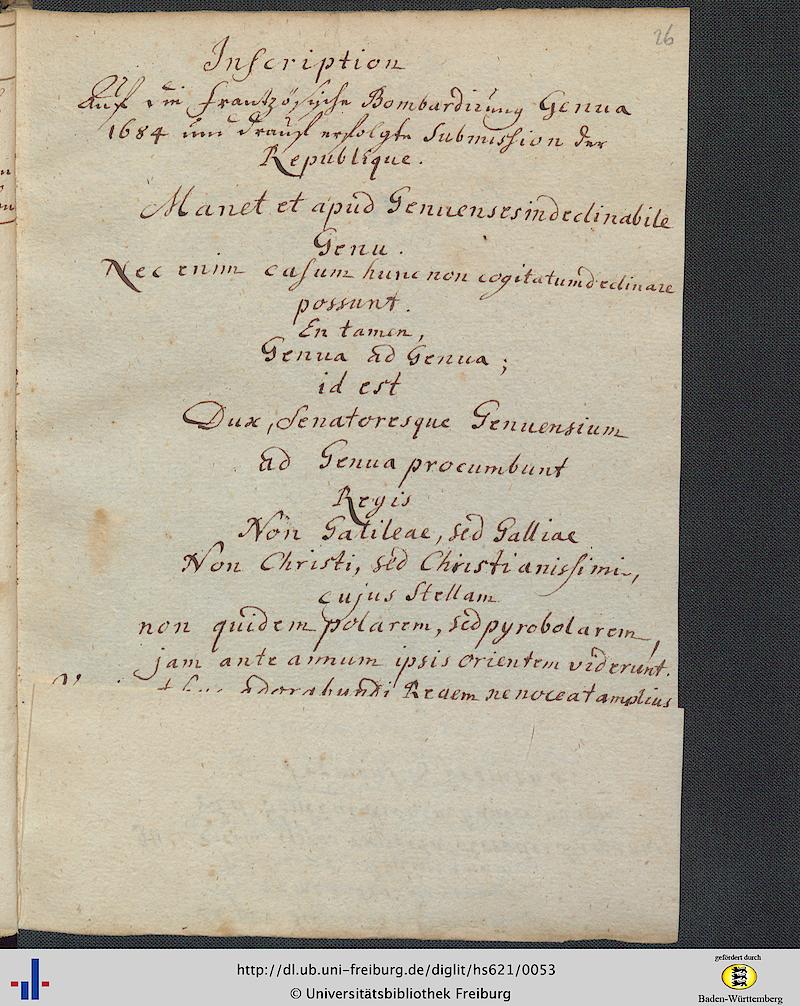 26
Inscription
Auf die Frantzösische Bombardirung Genua
1684 und drauf erfolgte Submission der
Republique.
Manet et apud Genuenses indeclinabile
Genu.
Nec enim casum hunc non cogitatum declinare
possunt.
En tamen,
Genua ad Genua;
id est
Dux, Senatoresque Genuensium
ad Genua procumbunt
Regis
Non Galileae, sed Galliae
Non Christi, sed Christianissimi,
cujus Stellam
non quidem polarem, sed pyrobolarem,
jam ante annum ipsis orientem viderunt.
adorabundi Regem ne noceat amplius
http://dl.ub.uni-freiburg.de/diglit/hs621/0053
© Universitätsbibliothek Freiburg
gefördert durch
Baden-Württemberg